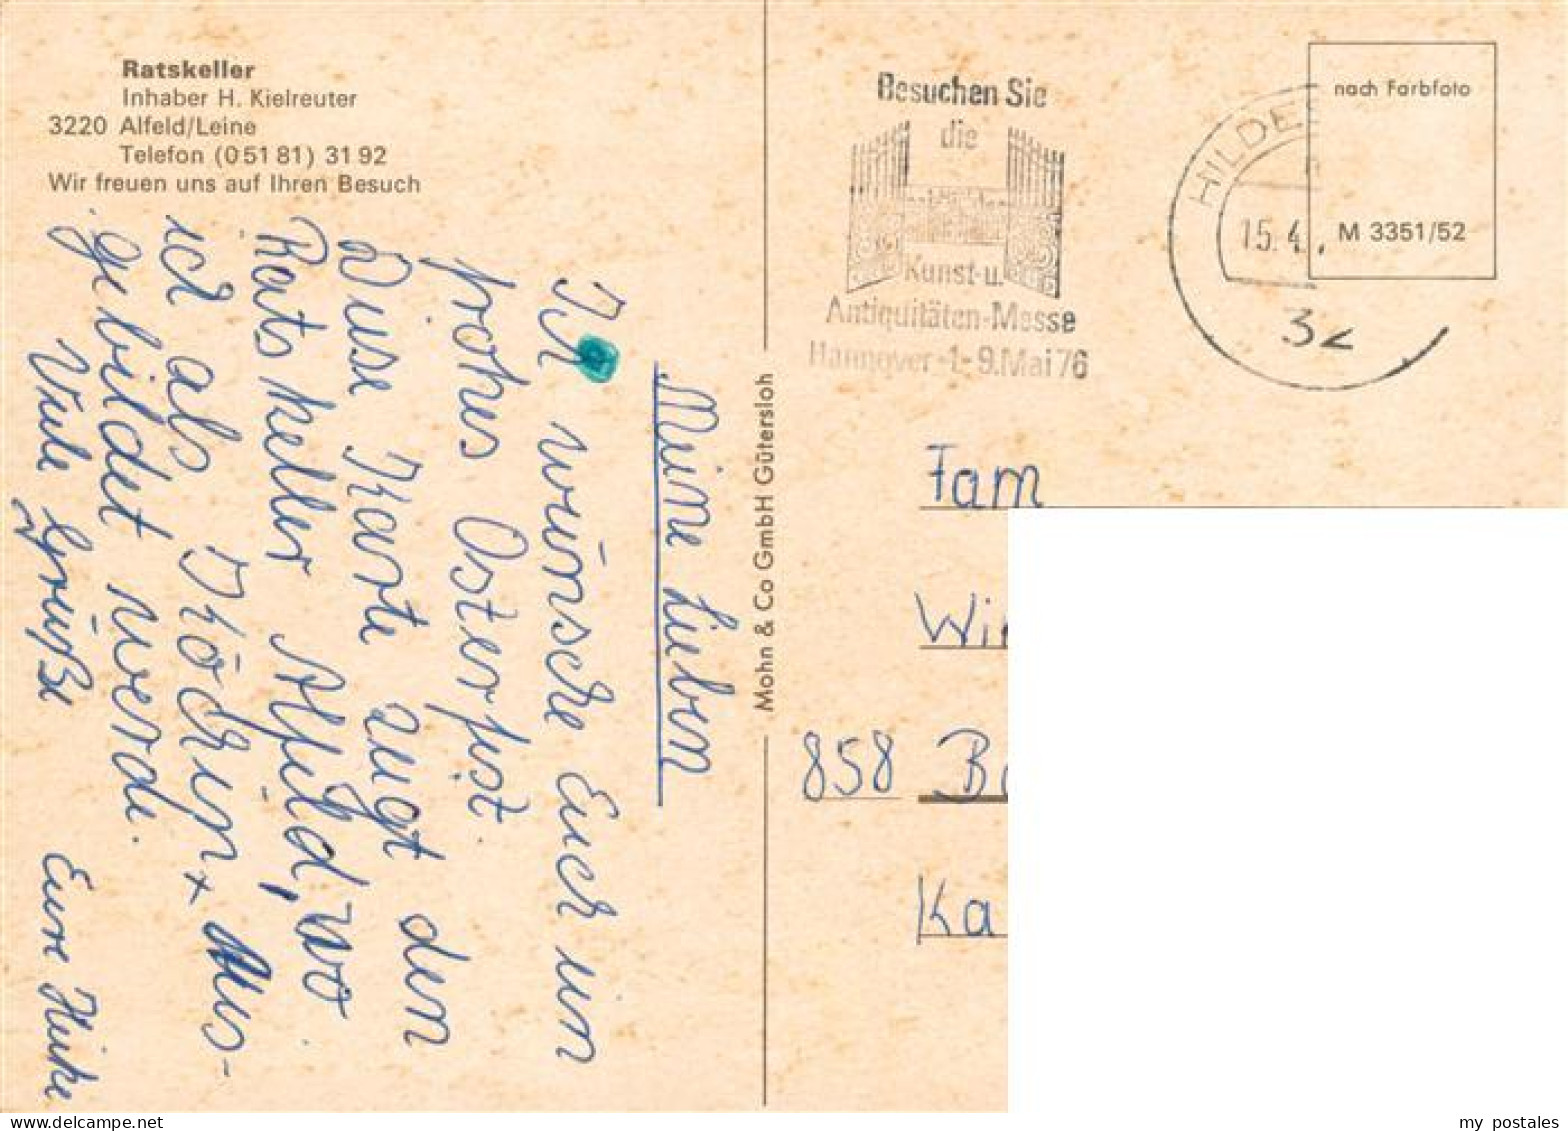 Ratskeller
Inhaber H. Kielreuter
3220 Alfeld/Leine
Telefon (0 51 81) 31 92
Wir freuen uns auf Ihren Besuch
Meine Lieben
Ich wünsche Euch ein
frohes Osterfest.
Diese Karte zeigt den
Ratskeller Alfeld, wo
ich als Köchin + Aus-
gebildet werde.
Viele Grüße Eure Heike
Mohn & Co GmbH Gütersloh
Besuchen Sie
die
Kunst- u.
Antiquitäten-Messe
Hannover -1.- 9. Mai 76
HILDE
15.4.
32
nach Farbfoto
M 3351/52
Fam
Win
858 Ba
Ka
my postales